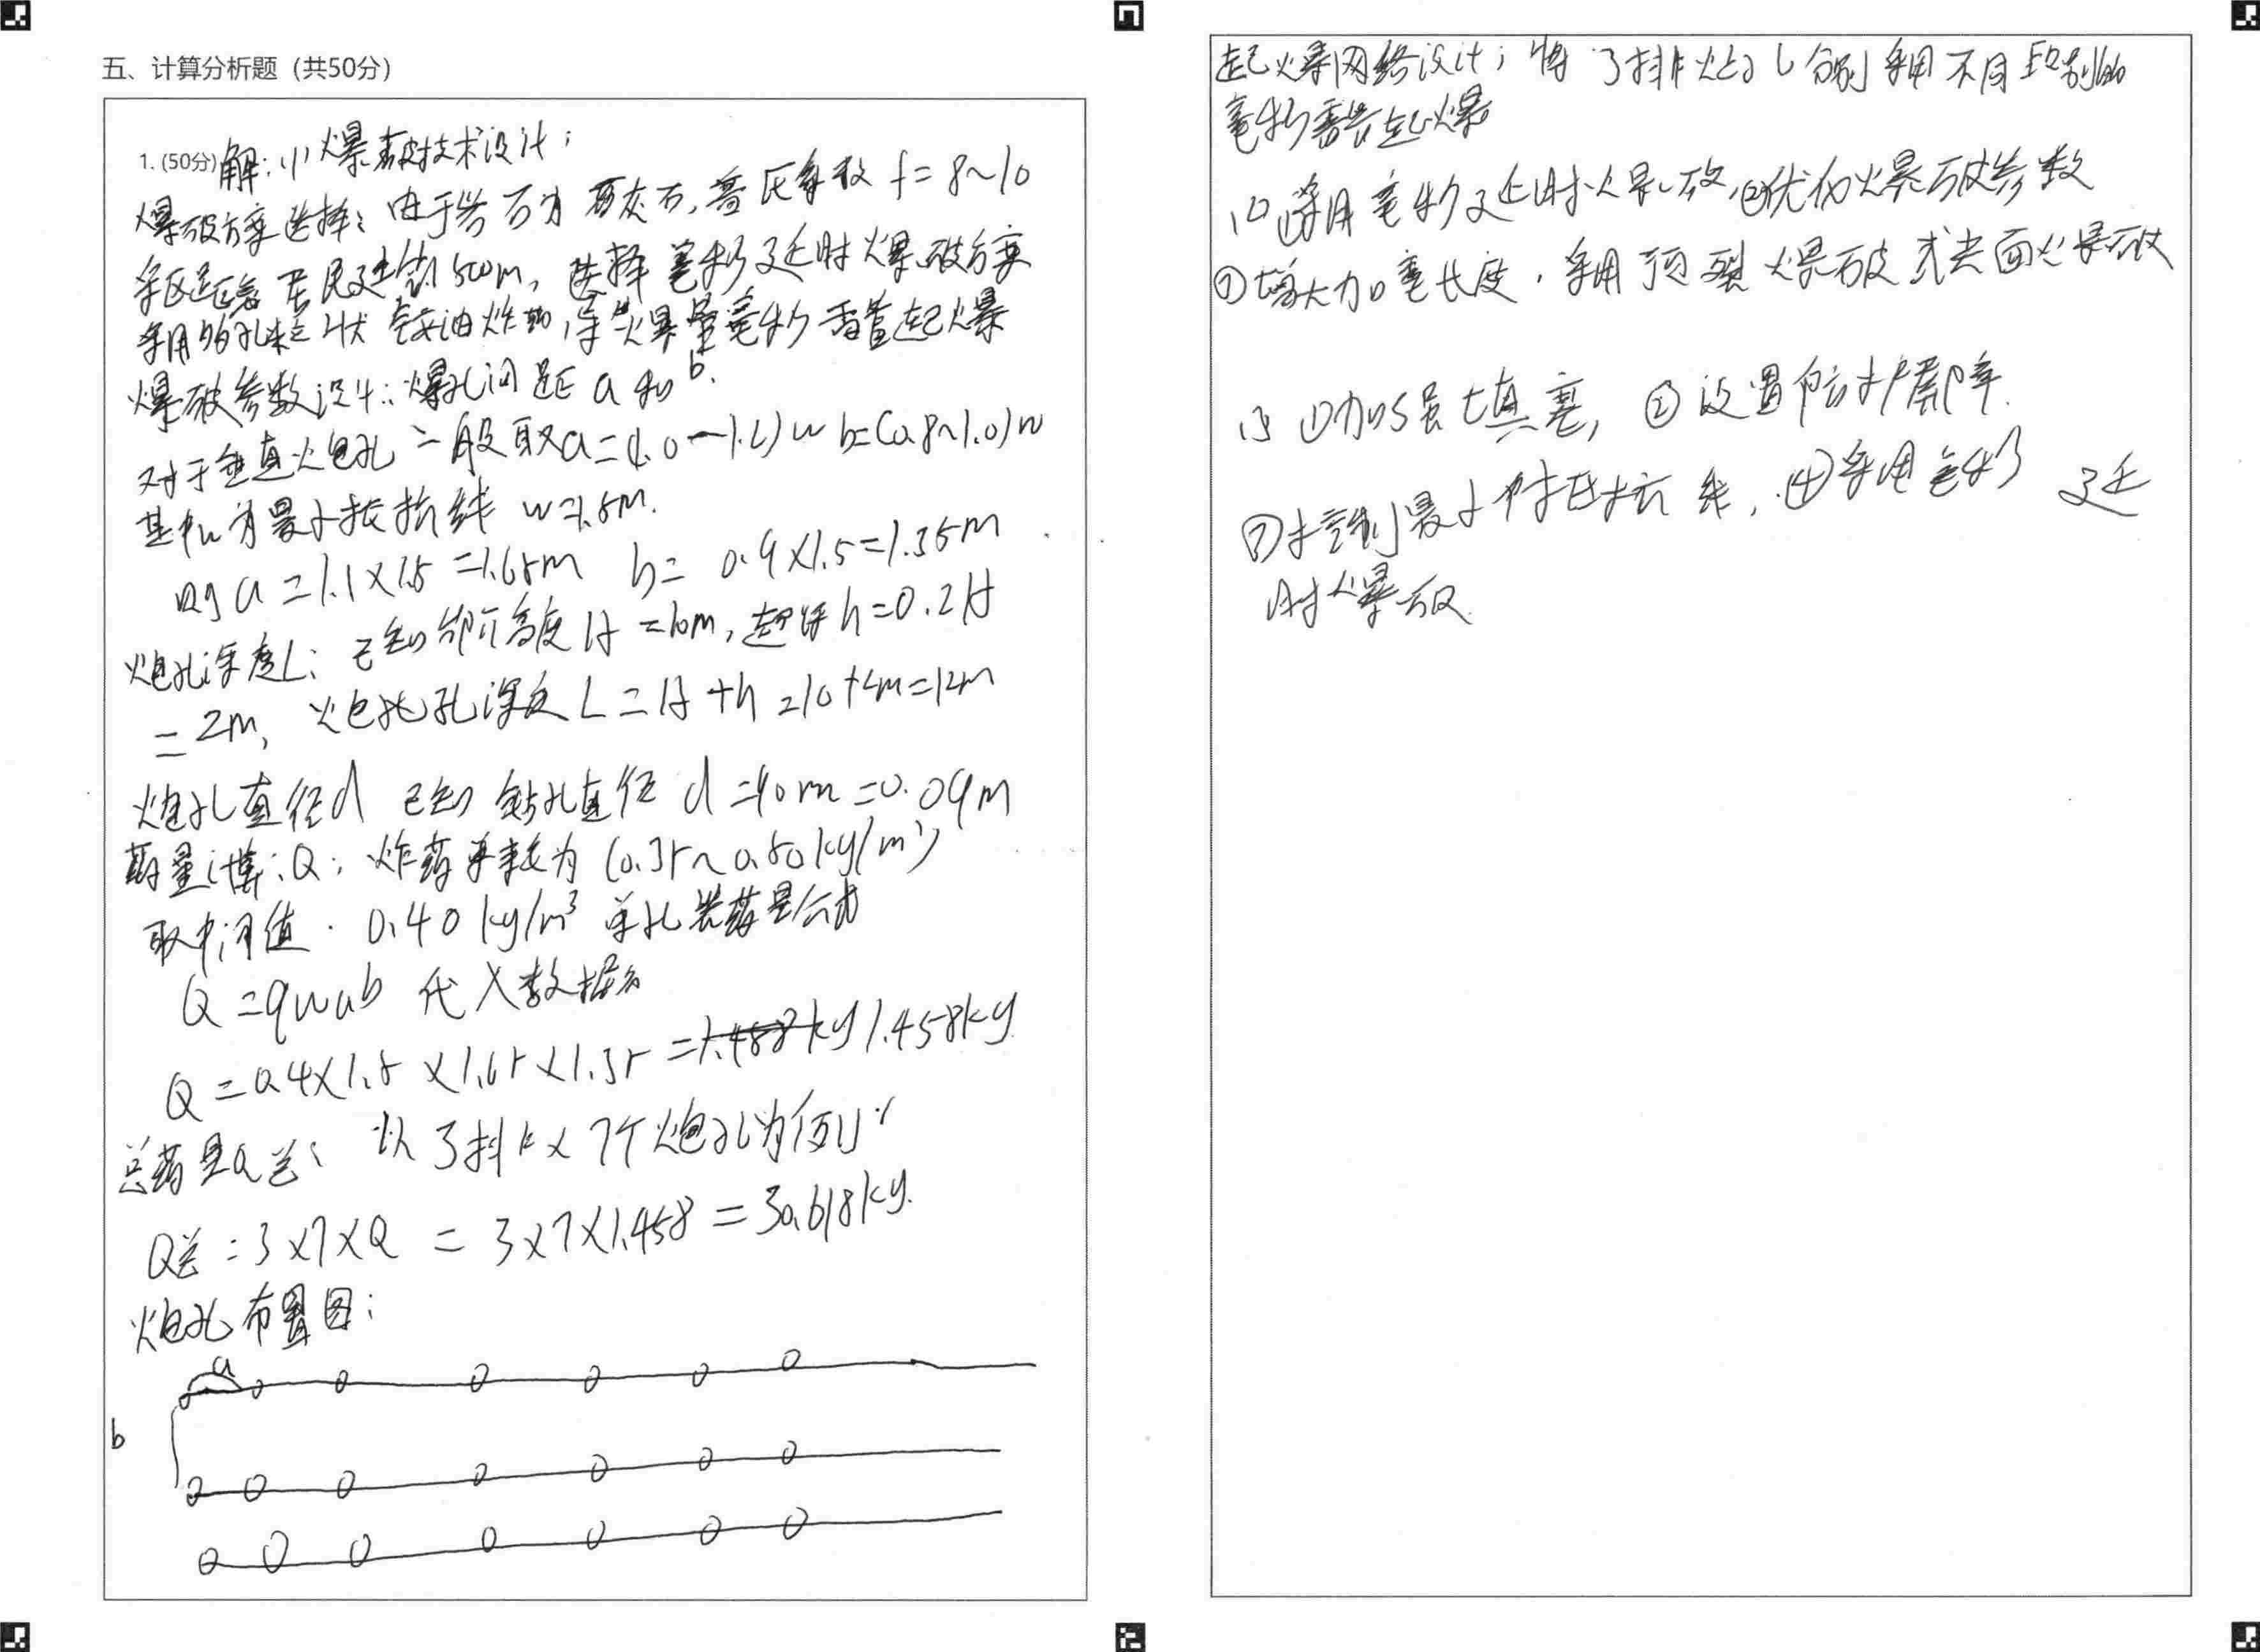 五、计算分析题（共50分）
1. (50分) 解: (1) 爆破技术设计;
爆破方案选择: 由于岩石为石灰石, 普氏系数 f=8~10
采区距离居民建筑500m, 选择毫秒延时爆破方案
采用多孔粒状铵油炸药, 导爆管毫秒雷管起爆
爆破参数设计: 爆孔间距 a 和 b.
对于垂直炮孔一般取 a=(1.0~1.2)w b=(0.8~1.0)w
其中w为最小抵抗线 w=1.5m.
则 a=1.1×1.5=1.65m b= 0.9×1.5=1.35m
炮孔深度L: 已知台阶高度 H=10m, 超深 h=0.2H
=2m, 炮孔孔深度 L=H+h=10+2m=12m
炮孔直径d 已知钻孔直径 d=90mm=0.09m
药量计算: Q: 炸药单耗为 (0.35~0.50kg/m³)
取中间值. 0.40 kg/m³ 单孔装药量公式
Q=qwab 代入数据
Q=0.4×1.5×1.65×1.35=1.458kg
总药量Q总: 以3排×7个炮孔为例:
Q总=3×7×Q = 3×7×1.458=30.618kg.
炮孔布置图:
a
b
起爆网络设计; 将3排炮孔分别采用不同段别的
毫秒雷管起爆
①采用毫秒延时爆破, ②优化爆破参数
③增大加 长度, 采用预裂爆破或光面爆破
(3) ①加强填塞, ②设置防护屏障.
③控制最小抵抗线, ④采用毫秒延
时爆破.